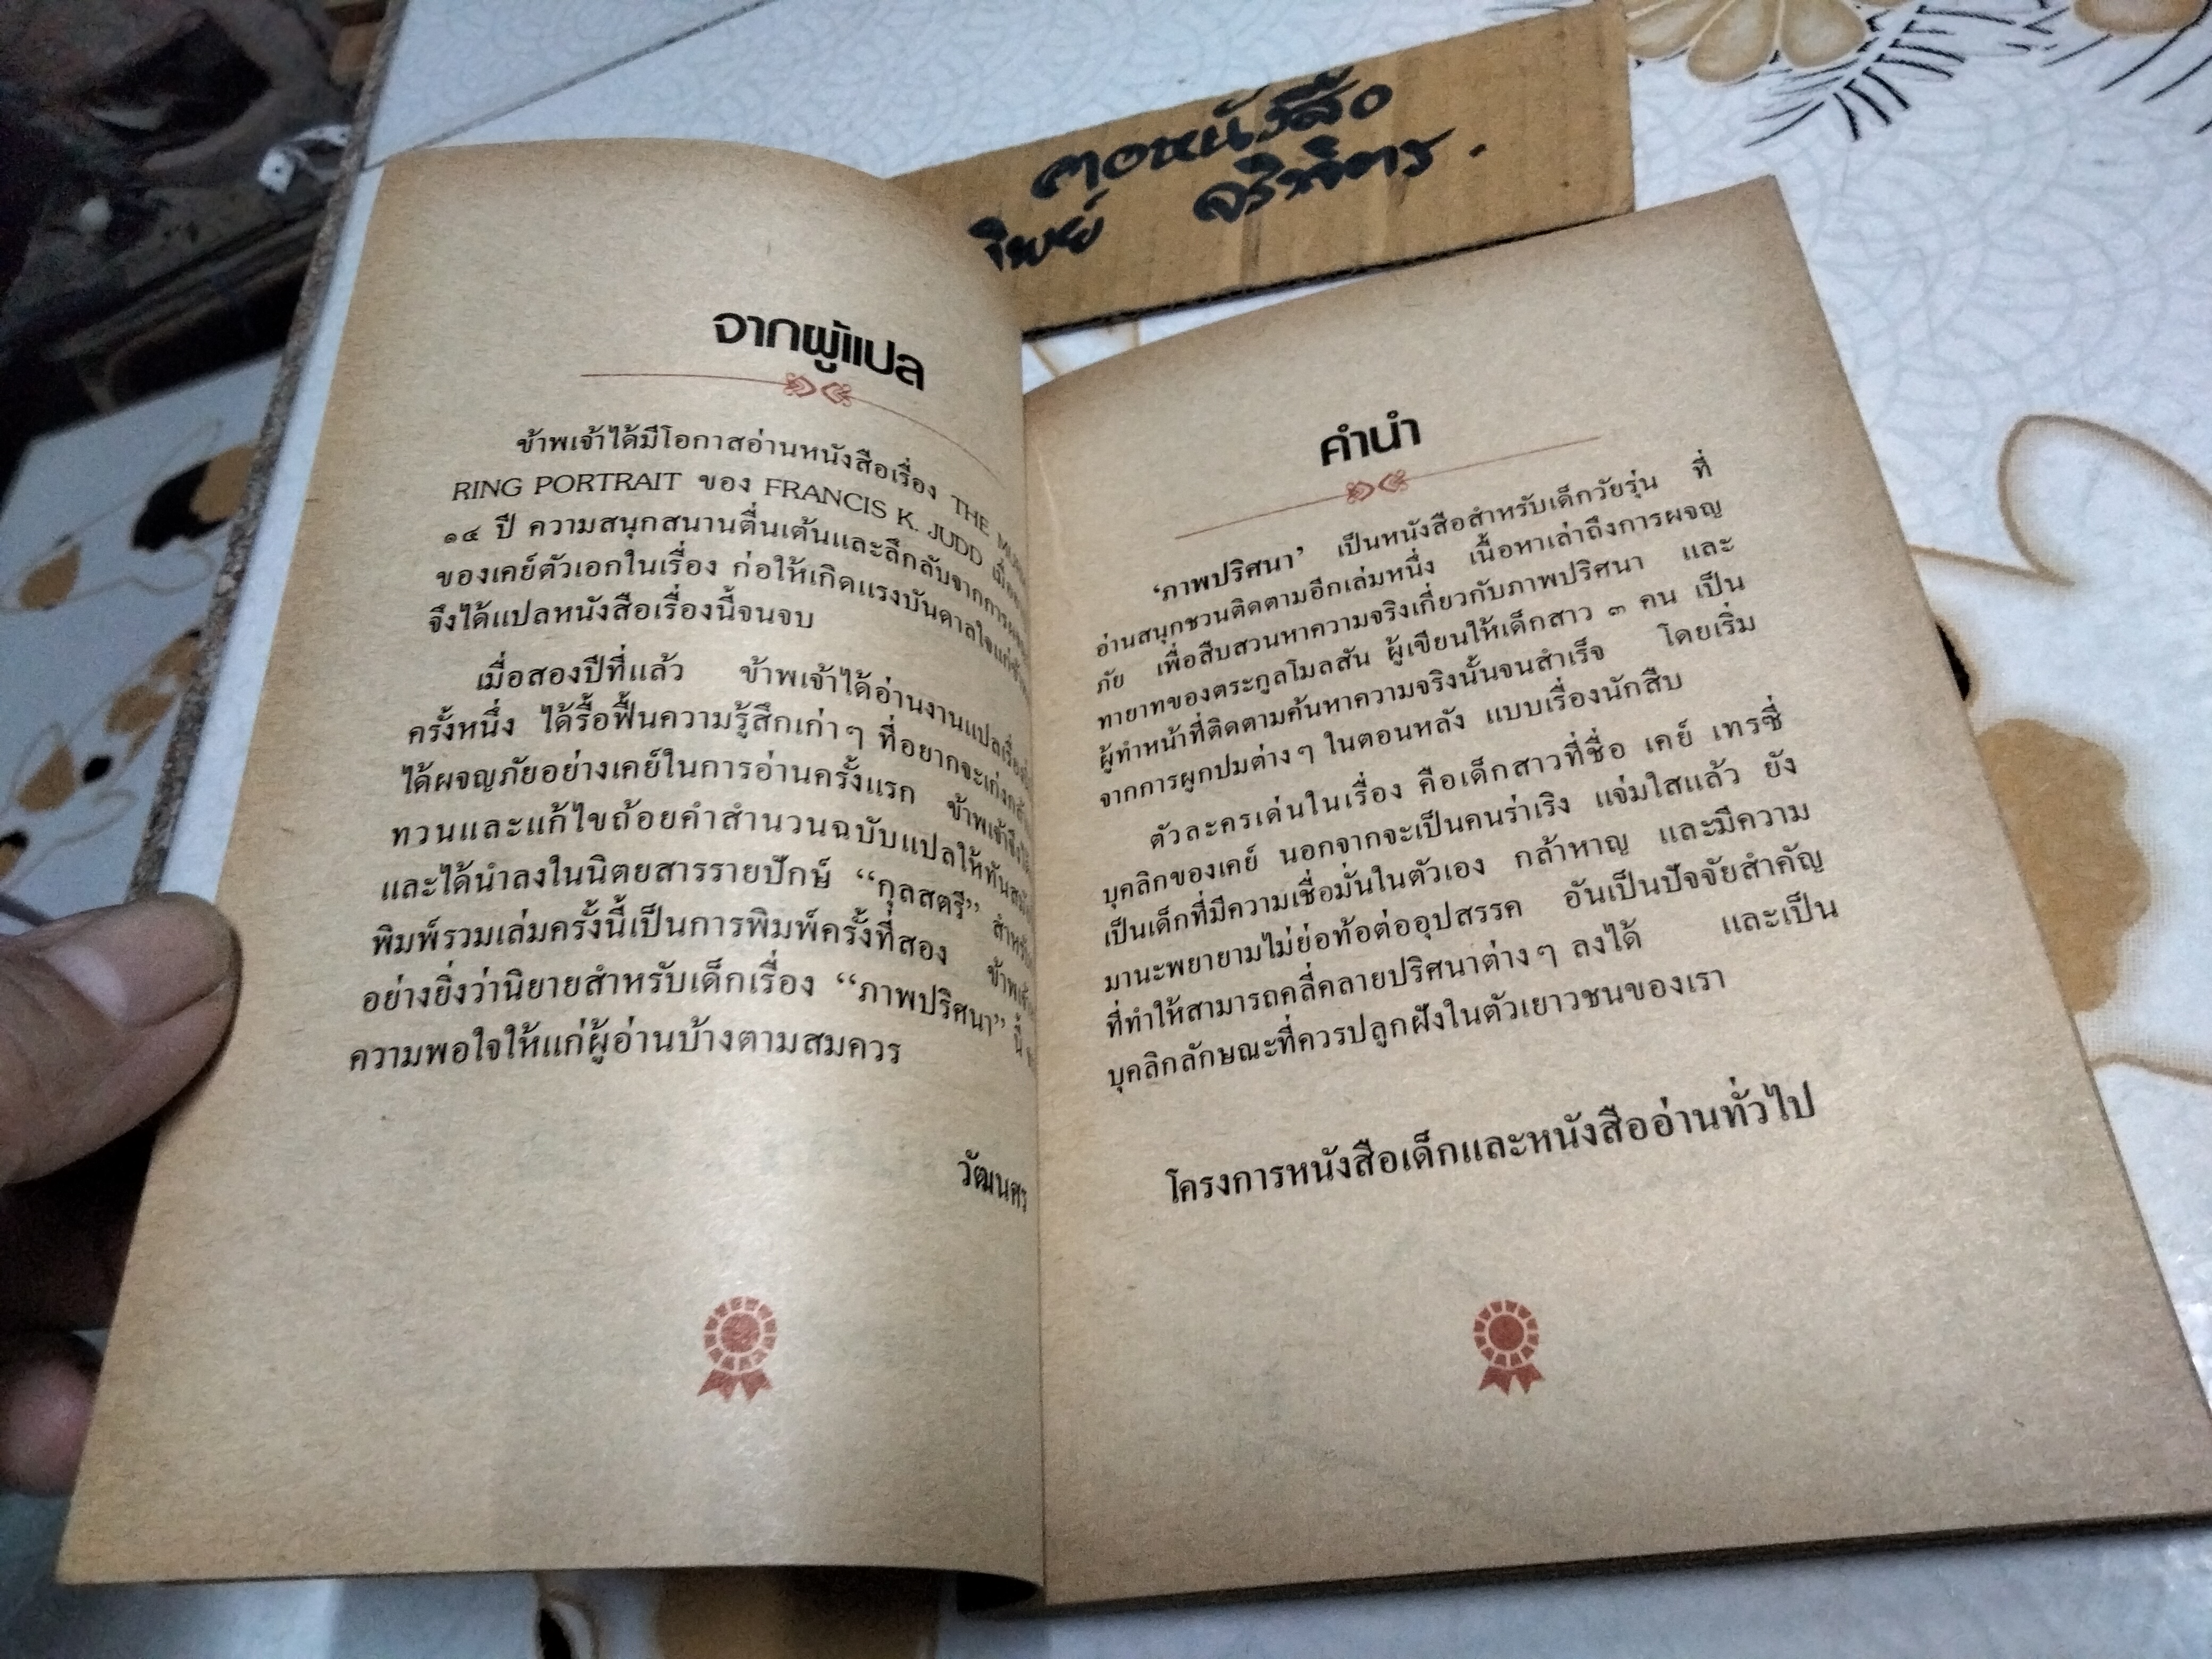 คอหนังสือ
ทิพย์ จริพิตร.
จากผู้แปล
ข้าพเจ้าได้มีโอกาสอ่านหนังสือเรื่อง THE
RING PORTRAIT ของ FRANCIS K. JUDD เมื่อ
๑๔ ปี ความสนุกสนานตื่นเต้นและลึกลับจากการ
ของเคย์ตัวเอกในเรื่อง ก่อให้เกิดแรงบันดาลใจแก่
จึงได้แปลหนังสือเรื่องนี้จนจบ
เมื่อสองปีที่แล้ว ข้าพเจ้าได้อ่านงานแปลเรื่อง
ครั้งหนึ่ง ได้รื้อฟื้นความรู้สึกเก่าๆ ที่อยากจะเก่ง
ได้ผจญภัยอย่างเคย์ในการอ่านครั้งแรก ข้าพเจ้าจึง
ทวนและแก้ไขถ้อยคำสำนวนฉบับแปลให้ทัน
และได้นำลงในนิตยสารรายปักษ์ “กุลสตรี”
พิมพ์รวมเล่มครั้งนี้เป็นการพิมพ์ครั้งที่สอง
อย่างยิ่งว่านิยายสำหรับเด็กเรื่อง “ภาพปริศนา” นี้
ความพอใจให้แก่ผู้อ่านบ้างตามสมควร
วัฒนศร
คำนำ
‘ภาพปริศนา’ เป็นหนังสือสำหรับเด็กวัยรุ่น ที่
อ่านสนุกชวนติดตามอีกเล่มหนึ่ง เนื้อหาเล่าถึงการผจญ
ภัย เพื่อสืบสวนหาความจริงเกี่ยวกับภาพปริศนา และ
ทายาทของตระกูลโมลสัน ผู้เขียนให้เด็กสาว ๓ คน เป็น
ผู้ทำหน้าที่ติดตามค้นหาความจริงนั้นจนสำเร็จ โดยเริ่ม
จากการผูกปมต่างๆ ในตอนหลัง แบบเรื่องนักสืบ
ตัวละครเด่นในเรื่อง คือเด็กสาวที่ชื่อ เคย์ เทรซี่
บุคลิกของเคย์ นอกจากจะเป็นคนร่าเริง แจ่มใสแล้ว ยัง
เป็นเด็กที่มีความเชื่อมั่นในตัวเอง กล้าหาญ และมีความ
มานะพยายามไม่ย่อท้อต่ออุปสรรค อันเป็นปัจจัยสำคัญ
ที่ทำให้สามารถคลี่คลายปริศนาต่างๆ ลงได้ และเป็น
บุคลิกลักษณะที่ควรปลูกฝังในตัวเยาวชนของเรา
โครงการหนังสือเด็กและหนังสืออ่านทั่วไป